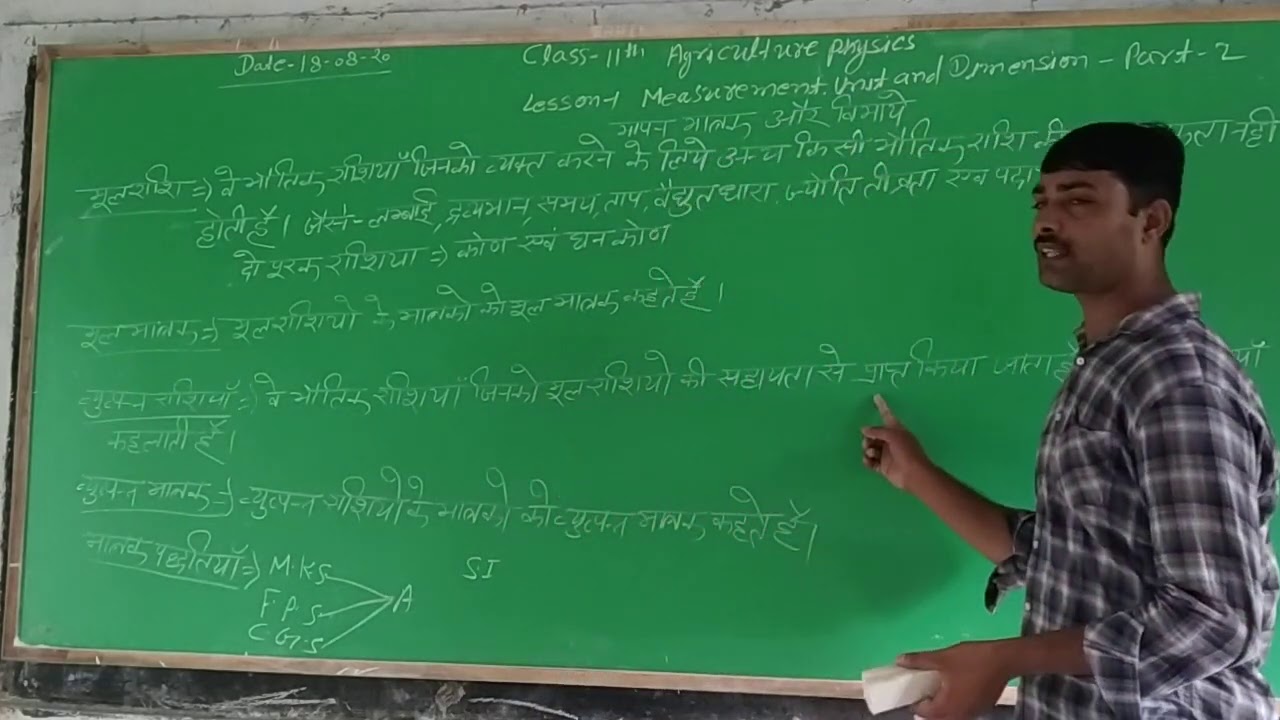 Date-18-08-20
Class-11th Agriculture physics
Lesson-1 Measurement. Unit and Dimension - Part-2
मापन मात्रक और विमाये
मूलराशि ⇒ वे भौतिक राशियाँ जिनको व्यक्त करने के लिये अन्य किसी भौतिक राशि की नही
होती हैं। जैसे- लम्बाई, द्रव्यमान, समय, ताप, वैद्युतधारा, ज्योति तीव्रता एवं पदा
दो पूरक राशिया ⇒ कोण एवं घन कोण
मूल मात्रक ⇒ मूलराशियो के मात्रको को मूल मात्रक कहते हैं।
व्युत्पन्न राशियाँ ⇒ वे भौतिक राशियाँ जिनको मूलराशियो की सहायता से प्राप्त किया जाता
कहलाती हैं।
व्युत्पन्न मात्रक ⇒ व्युत्पन्न राशियों के मात्रको को व्युत्पन्न मात्रक कहते हैं।
मात्रक पद्धतियाँ ⇒ M.K.S SI
F.P.S A
C.G.S